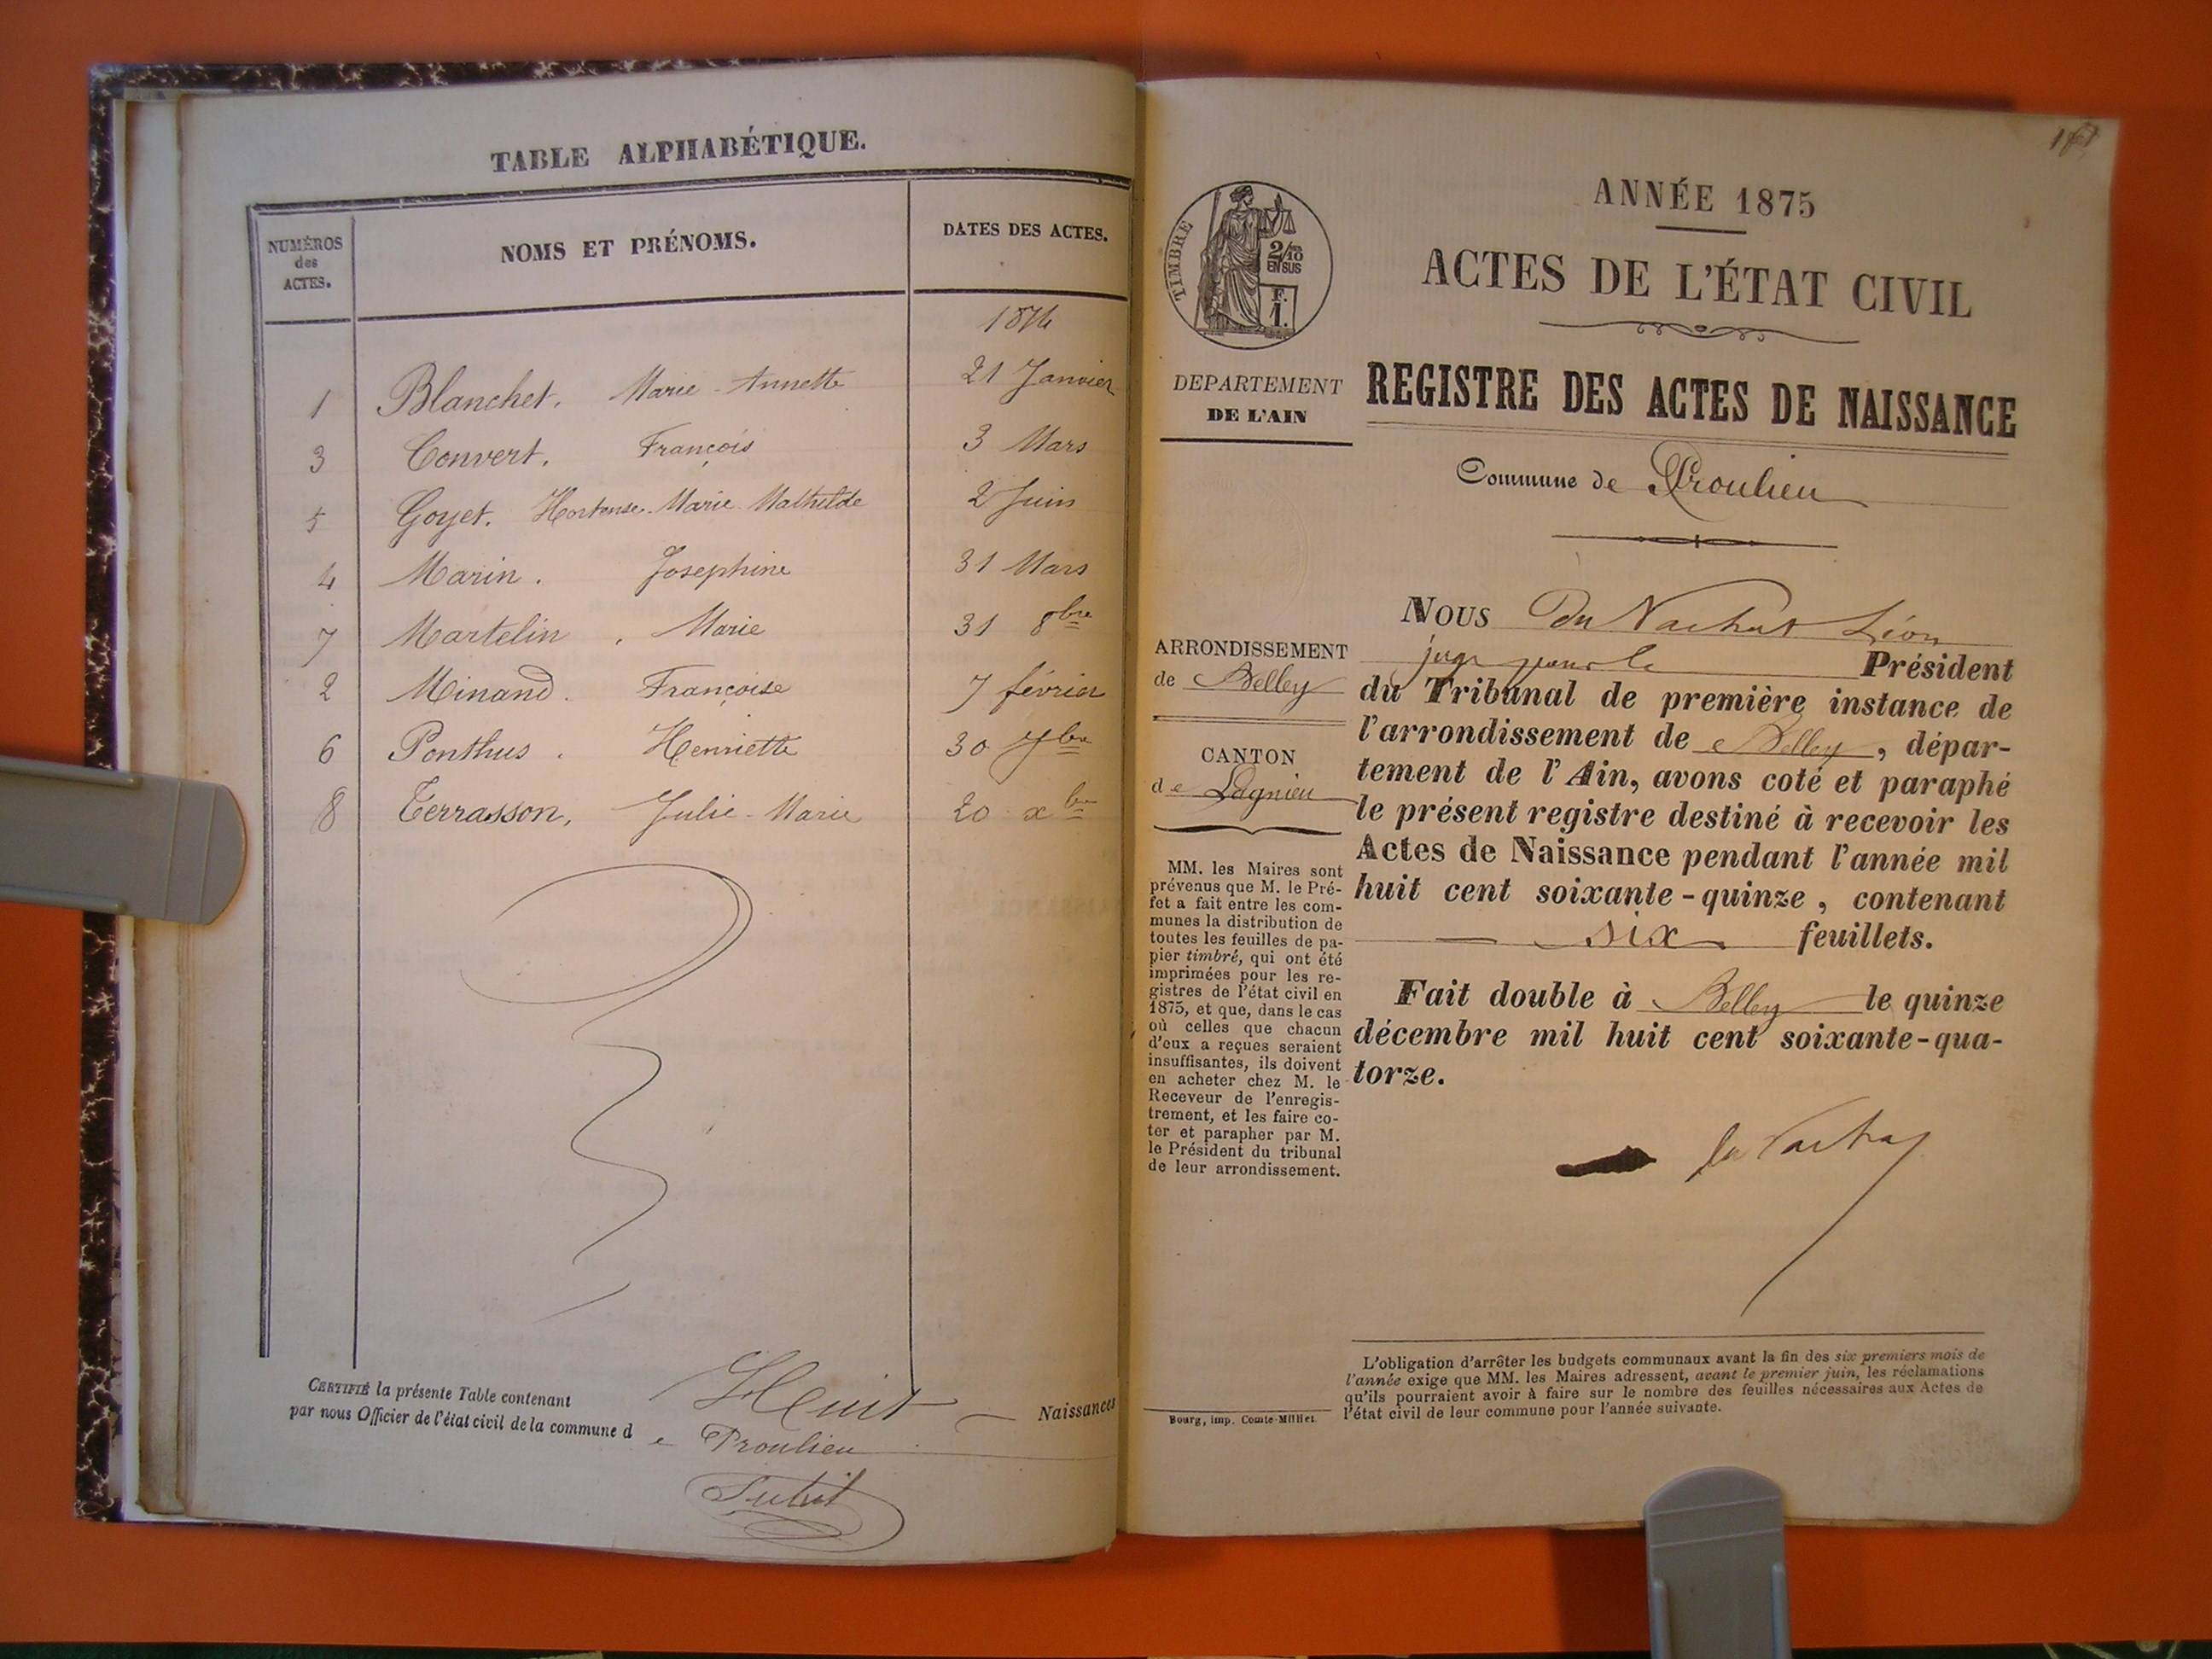 TABLE ALPHABÉTIQUE.
NUMÉROS des ACTES.
NOMS ET PRÉNOMS.
DATES DES ACTES.
1874
1 Blanchet. Marie-Annette 21 Janvier
3 Convert. François 3 Mars
5 Goyet. Hortense-Marie-Mathilde 2 Juin
4 Marin. Josephine 31 Mars
7 Martelin, Marie 31 8bre
2 Minand. Françoise 7 février
6 Ponthus. Henriette 30 7bre
8 Terrasson, Julie-Marie 20 xbre
CERTIFIÉ la présente Table contenant Huit Naissances
par nous Officier de l'état civil de la commune de Proulieu
ANNÉE 1875
ACTES DE L'ÉTAT CIVIL
REGISTRE DES ACTES DE NAISSANCE
Commune de Proulieu
TIMBRE
2/10
EN SUS
F.
1.
DEPARTEMENT
DE L'AIN
ARRONDISSEMENT
de Belley
CANTON
de Lagnieu
MM. les Maires sont
prévenus que M. le Pré-
fet a fait entre les com-
munes la distribution de
toutes les feuilles de pa-
pier timbré, qui ont été
imprimées pour les re-
gistres de l'état civil en
1875, et que, dans le cas
où celles que chacun
d'eux a reçues seraient
insuffisantes, ils doivent
en acheter chez M. le
Receveur de l'enregis-
trement, et les faire co-
ter et parapher par M.
le Président du tribunal
de leur arrondissement.
Bourg, imp. Comte-Milliet.
NOUS Du Nachat Léon
juge pour le Président
du Tribunal de première instance de
l'arrondissement de Belley, dépar-
tement de l'Ain, avons coté et paraphé
le présent registre destiné à recevoir les
Actes de Naissance pendant l'année mil
huit cent soixante-quinze, contenant
six feuillets.
Fait double à Belley le quinze
décembre mil huit cent soixante-qua-
torze.
L'obligation d'arrêter les budgets communaux avant la fin des six premiers mois de
l'année exige que MM. les Maires adressent, avant le premier juin, les réclamations
qu'ils pourraient avoir à faire sur le nombre des feuilles nécessaires aux Actes de
l'état civil de leur commune pour l'année suivante.